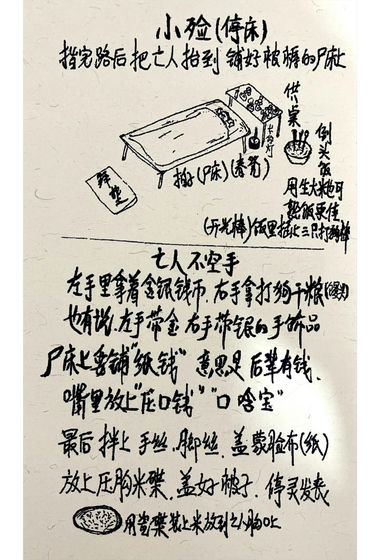 小殓(停床)
指完路后把亡人抬到铺好被褥的尸床上
供桌
长明灯
倒头饭
拜垫
排子(尸床)(春凳)
用生大米也可
熟饭更佳
(开光棒)饭里插上三只打狗棒
亡人不空手
左手里拿着金银钱币.右手拿打狗干粮(馒头)
也有说.左手带金右手带银的手饰品
尸床上要铺"纸钱"意思是后辈有钱.
嘴里放上"压口钱""口含宝"
最后拌上手丝.脚丝.盖蒙脸布(纸)
放上压胸米碟.盖好被子.停灵发丧
用瓷碟装上米放到亡人胸口上